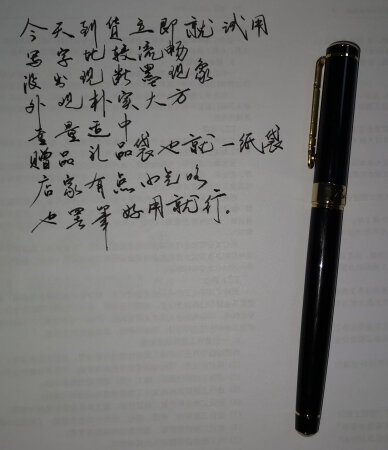 今天到货立即就试用
写字比较流畅
没出现断墨现象
外观朴实大方
重量适中
赠品礼品袋也就一纸袋
店家有点小气咯
也罢笔好用就行。